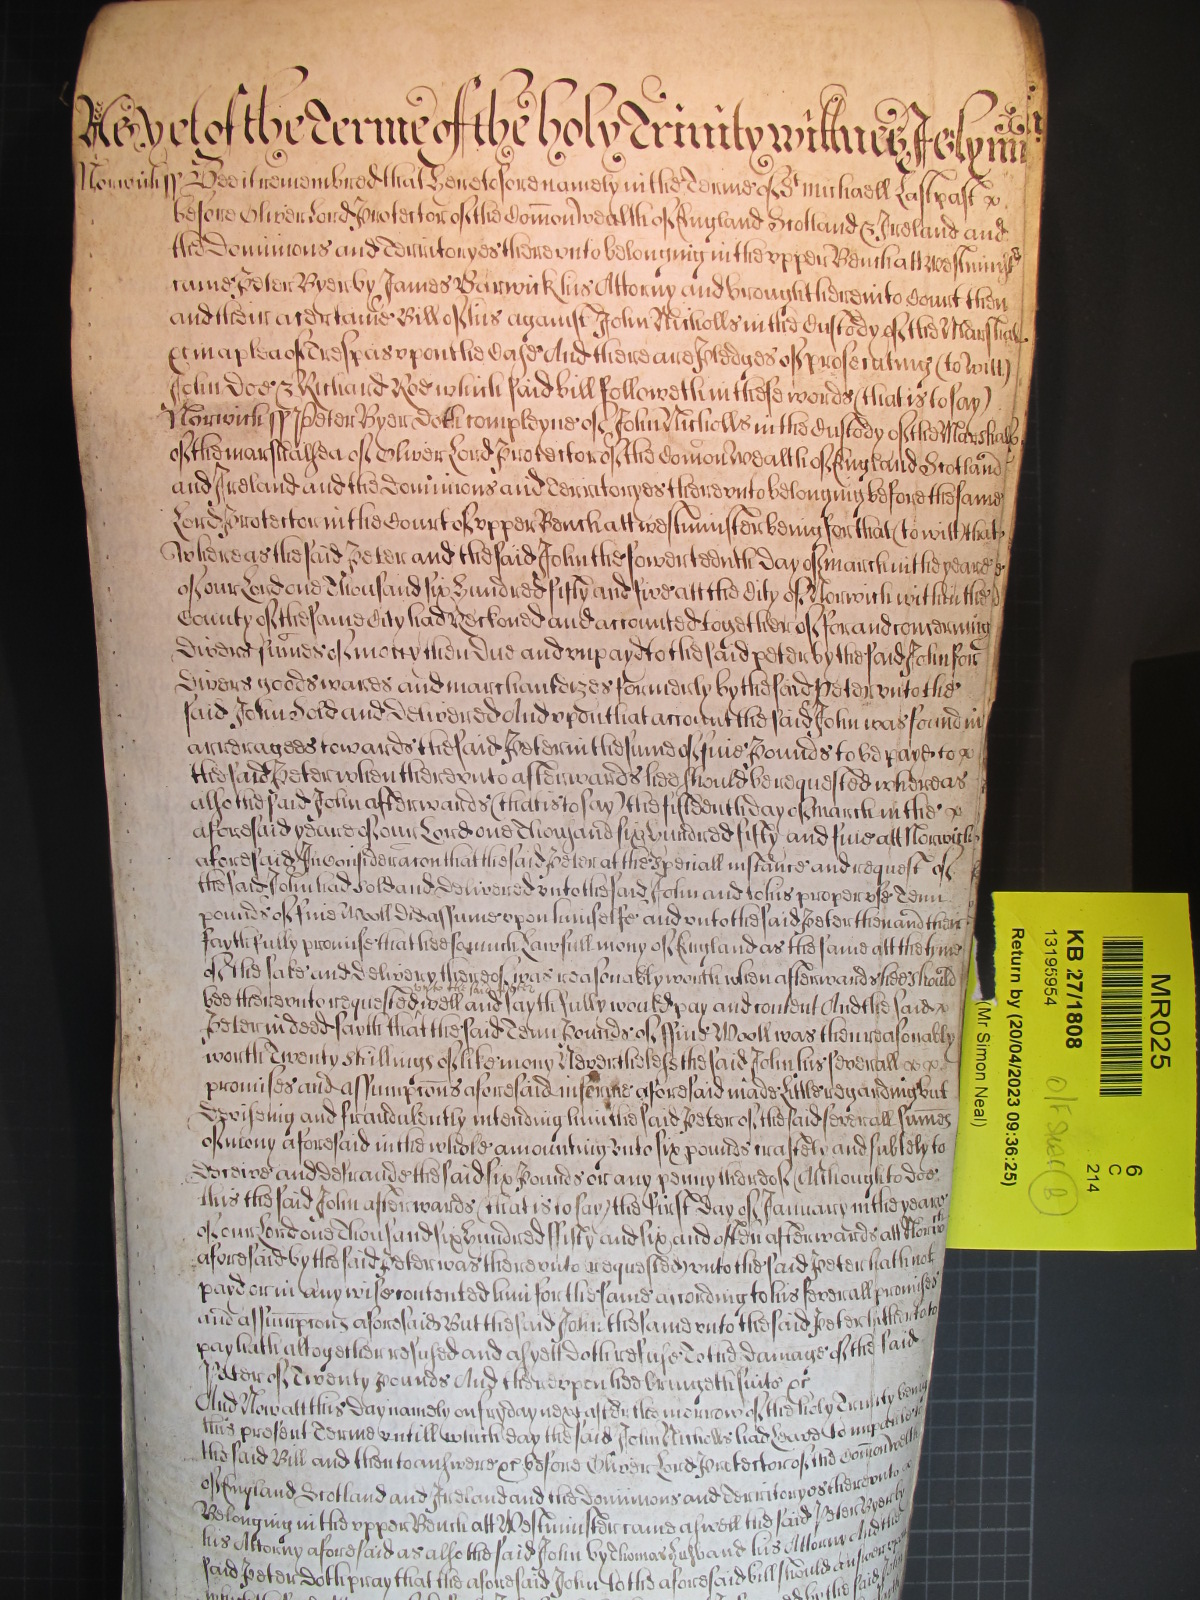 As yet of the Terme of the holy Trinity wittnes J Glynn
Norwich ss Bee it remembred that heretofore namely in the Terme of St Michaell Last past
before Oliver Lord Protector of the Comonwealth of England Scotland & Ireland and
the Dominions and Territoryes therevnto belonging in the vpper Bench att Westminster
came Peter Byer by James Barwick his Attorny and brought here into Court then
and there a certaine Bill of his against John Nicholls in the Custody of the Marshall
&c in a plea of Trespas vpon the Case And there are Pledges of prosecuting (to witt)
John Doe & Richard Roe which said bill followeth in these words (that is to say)
Norwich ss Peter Byer doth compleyne of John Nicholls in the Custody of the Marshall
of the marshalsea of Oliver Lord Protector of the Comonwealth of England Scotland
and Ireland and the Dominions and Territoryes therevnto belonging before the same
Lord Protector in the Court of vpper Bench att westminster being for that (to witt) that
Whereas the said Peter and the said John the fowerteenth Day of march in the yeare
of our Lord one Thousand six hundred fifty and five att the City of Norwich within the
County of the same City had Reckoned and accounted together of for and concerning
Divers sumes of money then due and vnpayd to the said peter by the said John for
Divers goods wares and marchandizes formerly by the said Peter vnto the
said John Sold and Delivered And vpon that account the said John was found in
arrerages towards the said Peter in the sume of five Pounds to be payd to
the said Peter when therevnto afterwards hee should be requested whereas
also the said John afterwards (that is to say) the fifteenth day of march in the
aforesaid yeare of our Lord one Thousand six hundred fifty and five att Norwich
aforesaid In consideracon that the said Peter at the speciall instance and request of
the said John had sold and delivered vnto the said John and to his proper vse Tenn
pounds of fine Wooll did assume vpon himselfe and vnto the said Peter then and there
faythfully promise that hee so much Lawfull mony of England as the same att the tyme
of the sale and delivery thereof was reasonably worth when afterwards hee should
vnto the said Peter
bee therevnto requested well and faythfully would pay and content And the said
Peter in deed sayth that the said Tenn Pounds of ffine Wooll was then reasonably
worth Twenty shillings of like mony Neverthelesse the said John his severall
promises and assumpcions aforesaid in forme aforesaid made Little regarding but
Devising and fraudulently intending him the said Peter of the said severall sumes
of mony aforesaid in the whole amounting vnto six pounds craftely and subtely to
deceive and defraude the said six Pounds or any penny thereof (Although to doe
this the said John afterwards (that is to say) the first Day of January in the yeare
of our Lord one Thousand six hundred ffifty and six and often afterwards att Norwch
aforesaid by the said Peter was therevnto requested) vnto the said Peter hath not
payd or in any wise contented him for the same according to his severall promises
and assumpcions aforesaid But the said John the same vnto the said Peter hitherto to
pay hath altogether refused and as yett doth refuse To the damage of the said
Peter of Twenty pounds And therevpon hee bringeth suite &c
And Now att this Day namely on fryday next after the morrow of the holy Trinity being
this present Terme vntill which day the said John Nicholls had Leave to imparle to
the said Bill and then to answere &c before Oliver Lord Protector of the Comonwealth
of England Scotland and Ireland and the Dominions and Territoryes therevnto
Belonging in the vpper Bench att Westminster came aswell the said Peter Byer by
his Attorny aforesaid as also the said John by Thomas Husband his Attorny And the
said Peter doth pray that the aforesaid John to the aforesaid bill should answere
by the said John
MR025
6
C
214
KB 27/1808
13195954
Return by (20/04/2023 09:36:25)
(Mr Simon Neal)